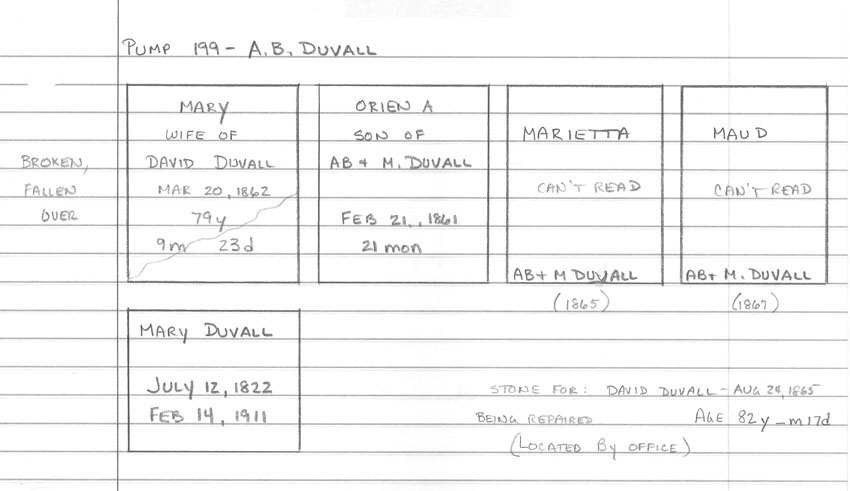 PUMP 199 - A.B. DUVALL
BROKEN,
FALLEN
OVER
MARY
WIFE OF
DAVID DUVALL
MAR 20, 1862
79y
9m 23d
ORIEN A
SON OF
AB & M. DUVALL
FEB 21, 1861
21 mon
MARIETTA
CAN'T READ
AB + M DUVALL
(1865)
MAUD
CAN'T READ
AB + M. DUVALL
(1867)
MARY DUVALL
JULY 12, 1822
FEB 14, 1911
STONE FOR: DAVID DUVALL - AUG 1865
BEING REPAIRED AGE 82y _ m 17d
(LOCATED BY OFFICE)